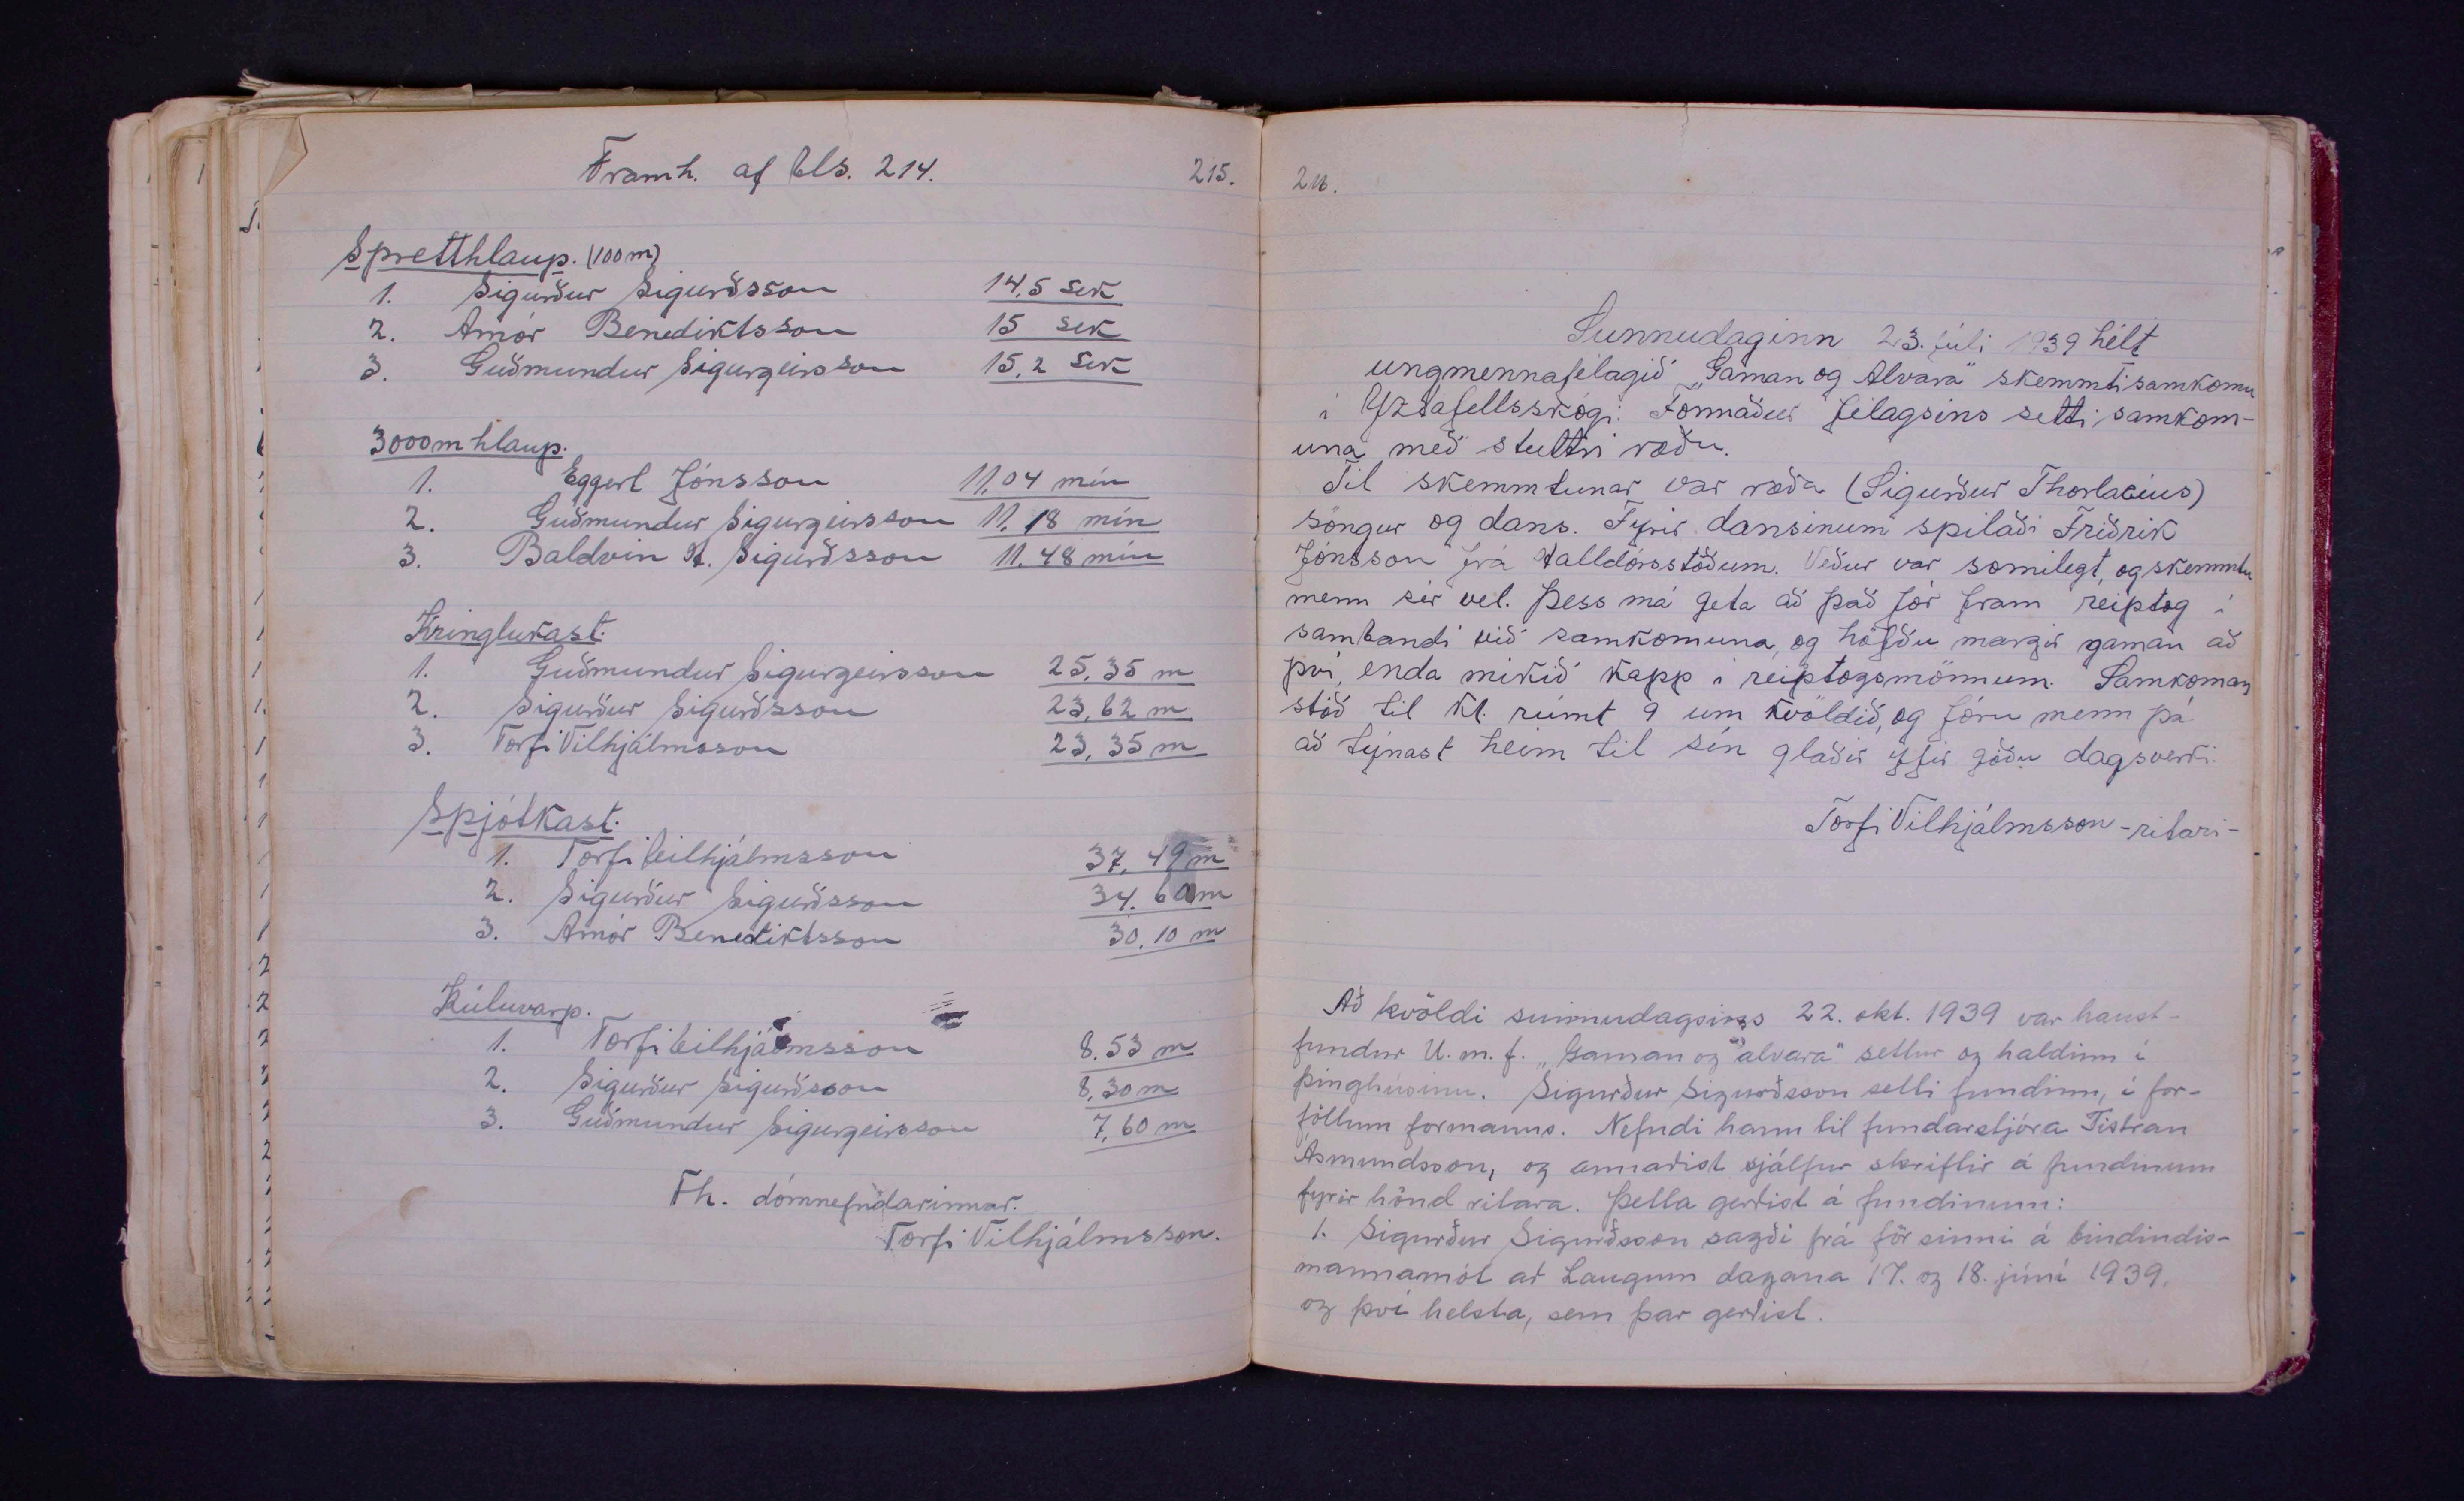 Framh. af bls. 214.
215.
Spretthlaup. (100 m)
1. Sigurður Sigurðsson 14,5 sek
2. Arnór Benediktsson 15 sek
3. Guðmundur Sigurgeirsson 15,2 sek
3000 m hlaup.
1. Eggert Jónsson 11,04 mín
2. Guðmundur Sigurgeirsson 11,18 mín
3. Baldvin Kr. Sigurðsson 11,48 mín
Kringlukast.
1. Guðmundur Sigurgeirsson 25,35 m
2. Sigurður Sigurðsson 23,62 m
3. Torfi Vilhjálmsson 23,35 m
Spjótkast.
1. Torfi Vilhjálmsson 37,49 m
2. Sigurður Sigurðsson 34,60 m
3. Arnór Benediktsson 30,10 m
Kúluvarp.
1. Torfi Vilhjálmsson 8,53 m
2. Sigurður Sigurðsson 8,30 m
3. Guðmundur Sigurgeirsson 7,60 m
Fh. dómnefndarinnar.
Torfi Vilhjálmsson.
216.
Sunnudaginn 23. júli 1939 hélt
ungmennafélagið „Gaman og Alvara" skemmtisamkomu
í Yztafellsskógi. Formaður félagsins setti samkom-
una með stuttri ræðu.
Til skemmtunar var ræða (Sigurður Thorlacius)
söngur og dans. Fyrir dansinum spilaði Friðrik
Jónsson frá Halldórsstöðum. Veður var sæmilegt, og skemmtu
menn sér vel. Þess má geta að það fór fram reiptog í
sambandi við samkomuna, og höfðu margir gaman að
því, enda mikið kapp í reiptogsmönnum. Samkoman
stóð til kl. rúmt 9 um kvöldið, og fóru menn þá
að týnast heim til sín glaðir yfir góðu dagsverki.
Torfi Vilhjálmsson - ritari -
Að kvöldi sunnudagsins 22. okt. 1939 var haust-
fundur U. m. f. „Gaman og alvara" settur og haldinn í
þinghúsinu. Sigurður Sigurðsson setti fundinn, í for-
föllum formanns. Nefndi hann til fundarstjóra Tistran
Ásmundsson, og annaðist sjálfur skriftir á fundinum
fyrir hönd ritara. Þetta gerðist á fundinum:
1. Sigurður Sigurðsson sagði frá för sinni á bindindis-
mannamót að Laugum dagana 17. og 18. júní 1939,
og því helsta, sem þar gerðist.